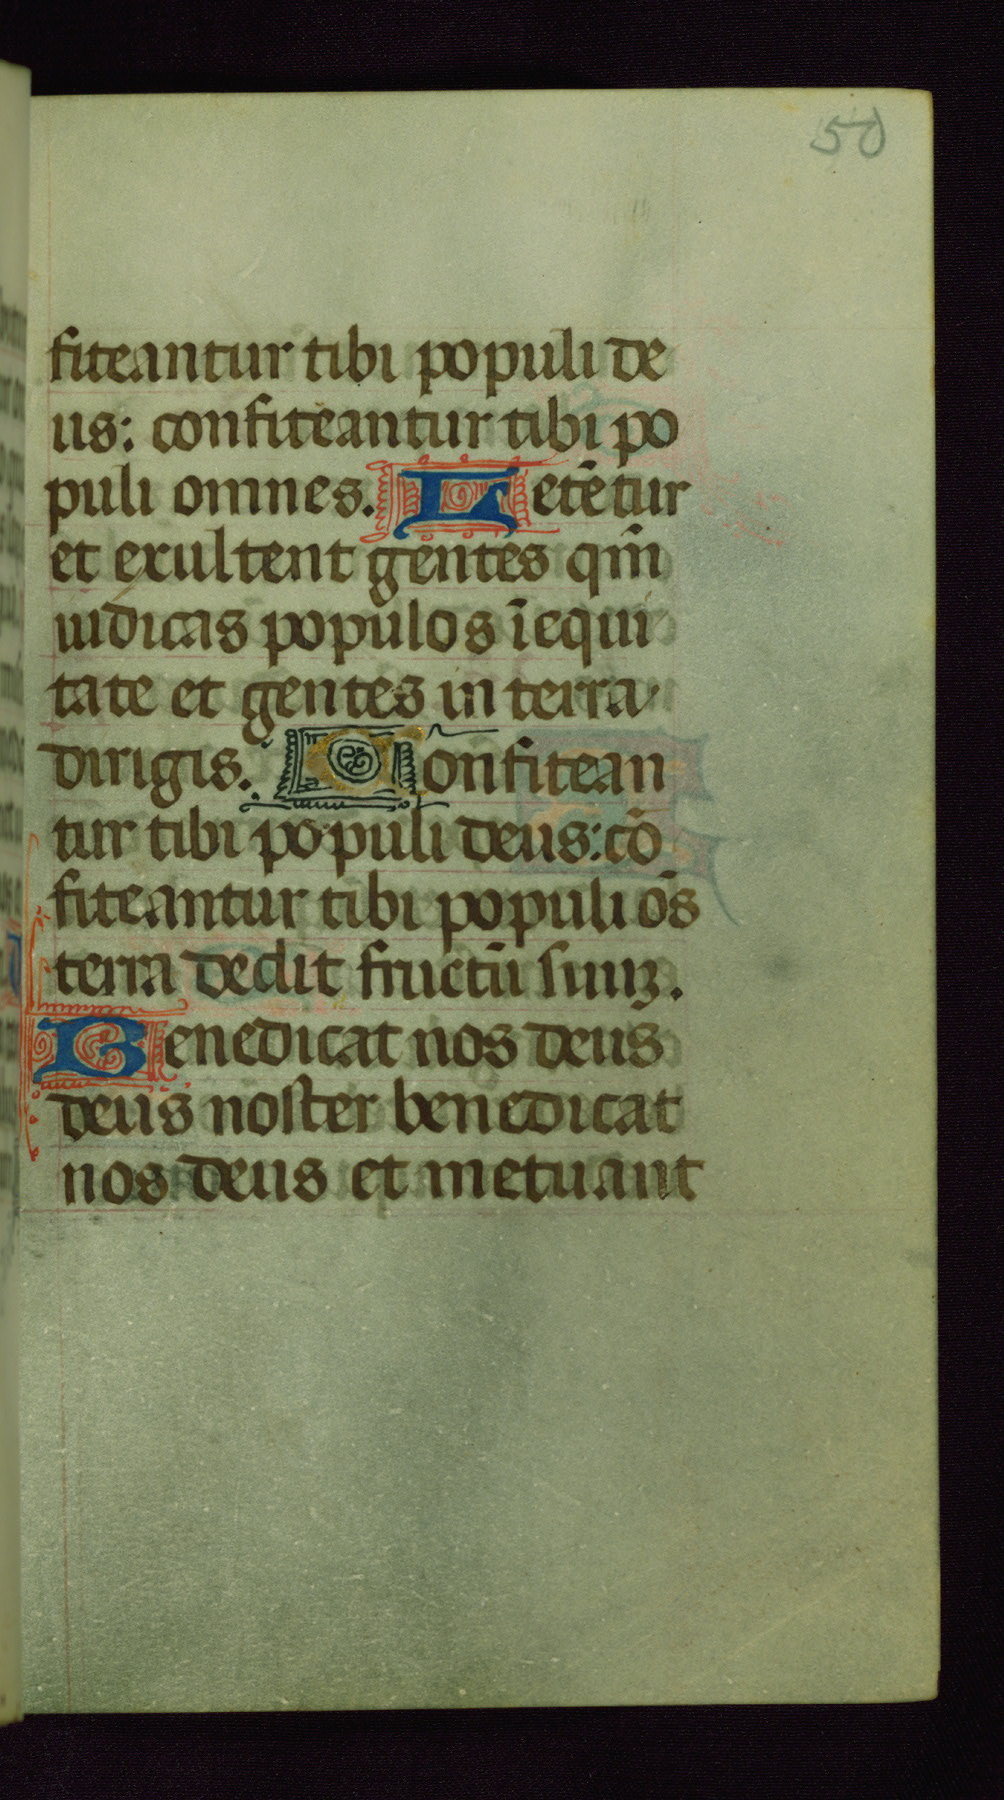 50
fiteantur tibi populi de
us: confiteantur tibi po
puli omnes. Letētur
et exultent gentes qm̄
iudicas populos ī equi
tate et gentes in terra
dirigis. Confitean
tur tibi populi deus: cō
fiteantur tibi populi om̄s
terra dedit fructū suuꝫ.
Benedicat nos deus
deus noster benedicat
nos deus et metuant